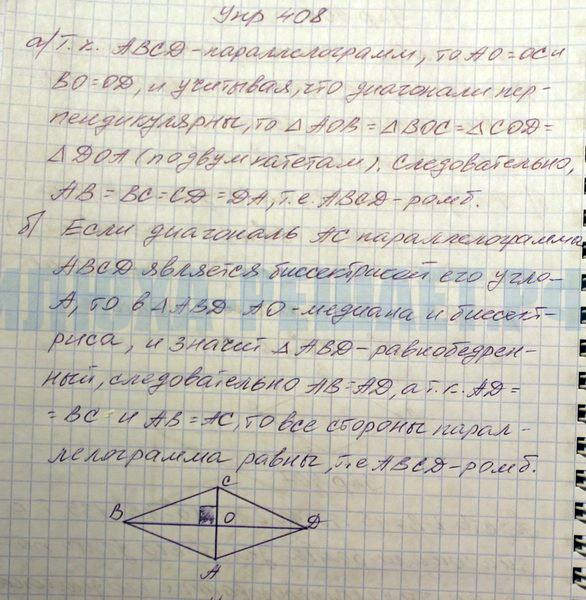 Упр 408
а) Т.к. ABCD-параллелограмм, то AO=OC и
BO=OD, и учитывая, что диагонали пер-
пендикулярны, то △AOB=△BOC=△COD=
△DOA (по двум катетам). Следовательно,
AB=BC=CD=DA, т.е. ABCD-ромб.
б) Если диагональ AC параллелограмма
ABCD является биссектрисой его угла-
A, то в △ABD AO-медиана и биссект-
риса, и значит △ABD-равнобедрен-
ный, следовательно AB=AD, а т.к. AD=
=BC и AB=AC, то все стороны парал-
лелограмма равны, т.е ABCD-ромб.
C
B O D
A